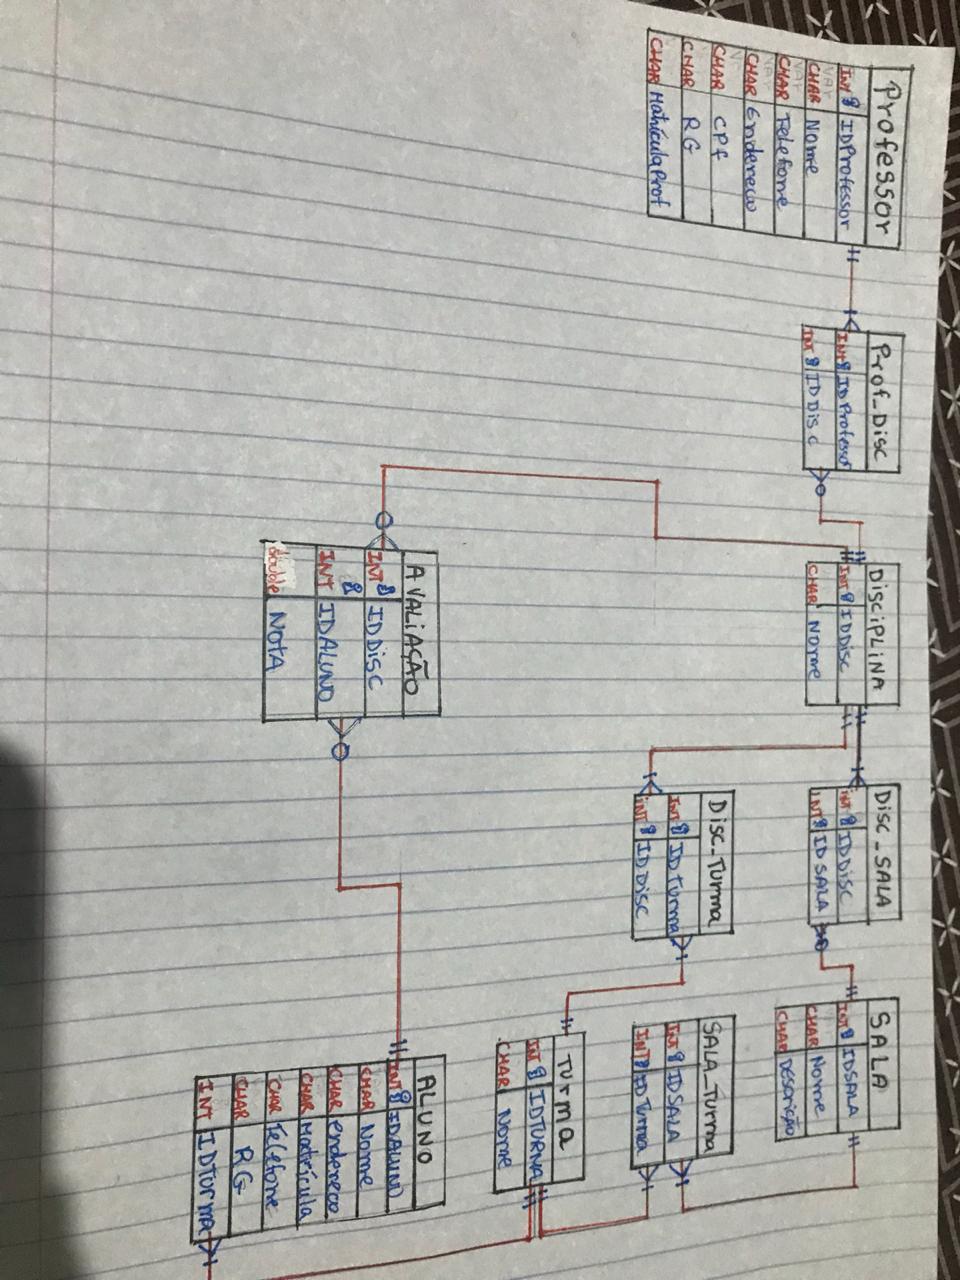 Professor
INT IDProfessor
VAR CHAR Nome
VAR CHAR Telefone
VAR CHAR Endereco
CHAR CPf
CHAR RG
CHAR MatrículaProf
Prof_Disc
INT IDProfessor
INT IDDisc
DISCIPLINA
INT IDDisc
CHAR Nome
DISC_SALA
INT IDDISC
INT IDSALA
SALA
INT IDSALA
CHAR Nome
CHAR Descrição
Disc_Turma
INT IDTurma
INT IDDISC
SALA_Turma
INT IDSALA
INT IDTurma
Turma
INT IDTURMA
CHAR Nome
AVALIAÇÃO
INT IDDISC
INT IDALUNO
double NOTA
ALUNO
INT IDALUNO
CHAR Nome
CHAR endereco
CHAR Matrícula
CHAR Telefone
CHAR RG
INT IDTurma